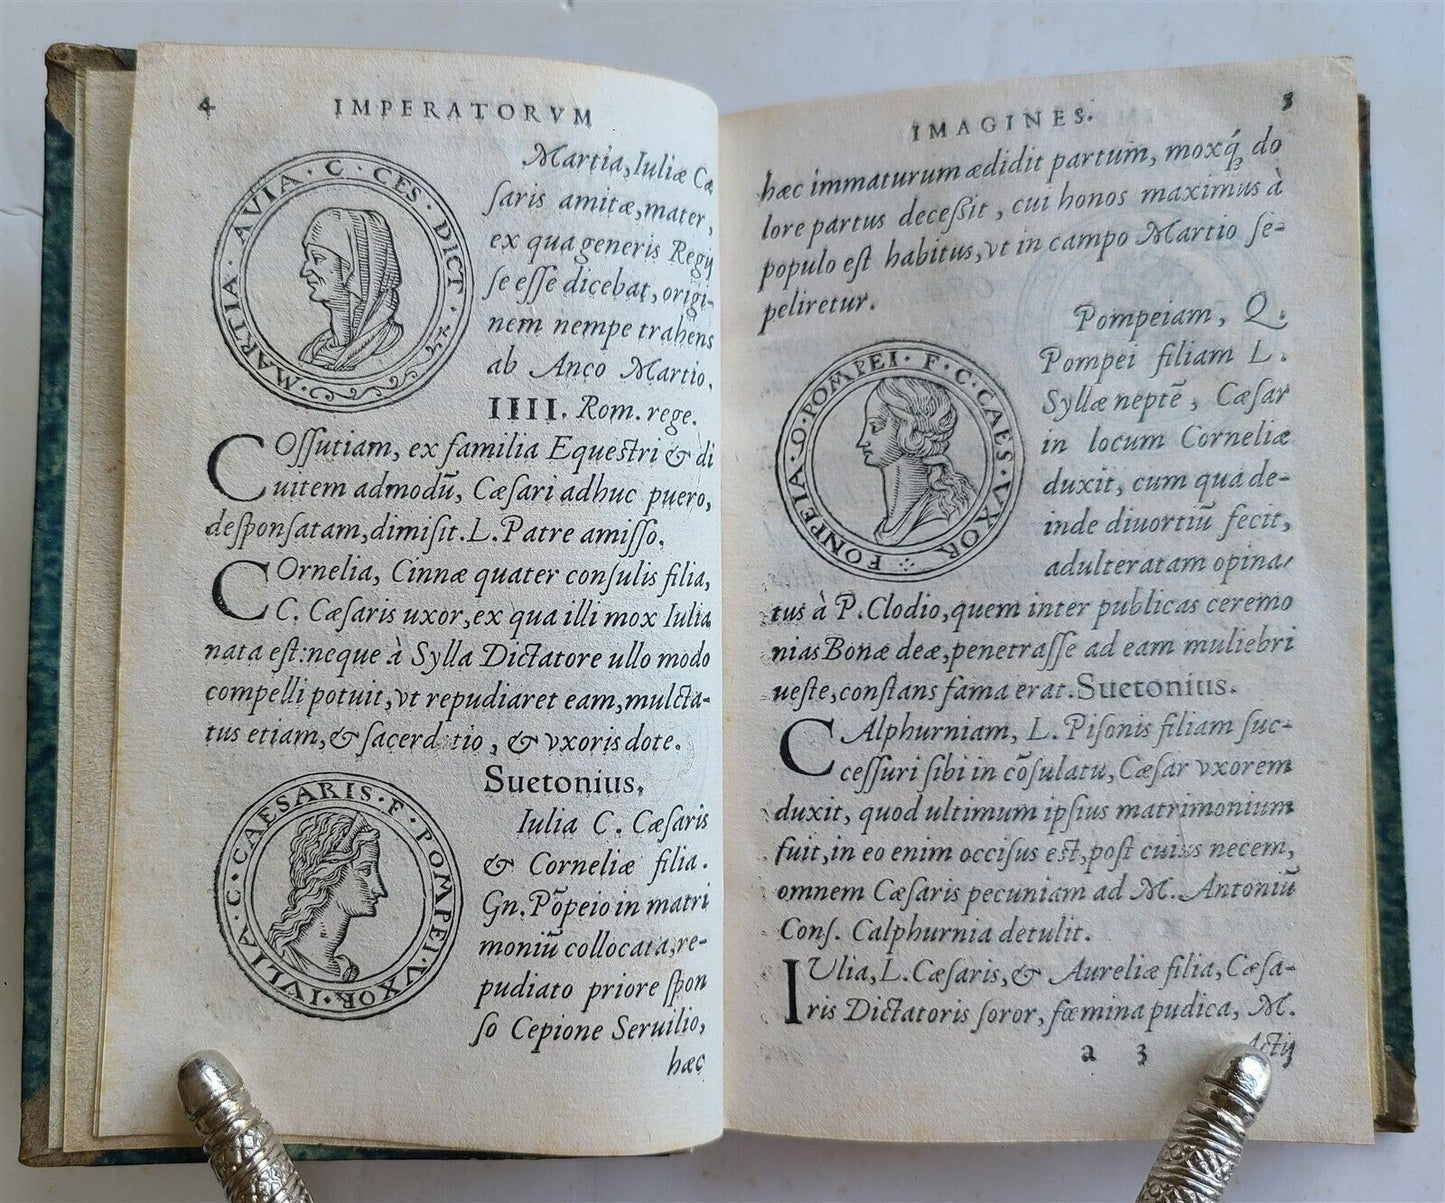 4 IMPERATORVM
MARTIA · AVIA · C · CES · DICT ·
Martia, Iuliæ Cæ
ſaris amitæ, mater,
ex qua generis Regij
ſe eſſe dicebat, origi-
nem nempe trahens
ab Anco Martio.
IIII. Rom. rege.
COſſutiam, ex familia Equeſtri & di
uitem admodū, Cæſari adhuc puero,
deſponſatam, dimiſit. L. Patre amiſſo.
COrnelia, Cinnæ quater conſulis filia,
C. Cæſaris uxor, ex qua illi mox Iulia
nata eſt: neque à Sylla Dictatore ullo modo
compelli potuit, vt repudiaret eam, mulcta-
tus etiam, & ſacerdotio, & vxoris dote.
Suetonius.
IVLIA · C · CAESARIS · F · POMPEI · VXOR ·
Iulia C. Cæſaris
& Corneliæ filia.
Gn. Pōpeio in matri
moniū collocata, re-
pudiato priore ſpon
ſo Cepione Seruilio,
hæc
IMAGINES. 5
hæc immaturum ædidit partum, moxq́; do
lore partus deceſsit, cui honos maximus à
populo eſt habitus, vt in campo Martio ſe-
peliretur.
FONPEIA · O · POMPEI · F · C · CAES · VXOR
Pompeiam, Q.
Pompei filiam L.
Syllæ neptē, Cæſar
in locum Corneliæ
duxit, cum qua de-
inde diuortiū fecit,
adulteratam opina-
tus à P. Clodio, quem inter publicas ceremo
nias Bonæ deæ, penetraſſe ad eam muliebri
ueſte, conſtans fama erat. Suetonius.
CAlphurniam, L. Piſonis filiam ſuc-
ceſſuri ſibi in cōſulatu, Cæſar vxorem
duxit, quod ultimum ipſius matrimonium
fuit, in eo enim occiſus eſt, poſt cuius necem,
omnem Cæſaris pecuniam ad M. Antoniū
Conſ. Calphurnia detulit.
IVlia, L. Cæſaris, & Aureliæ filia, Cæſa-
ris Dictatoris ſoror, fœmina pudica, M.
a 3 Actij